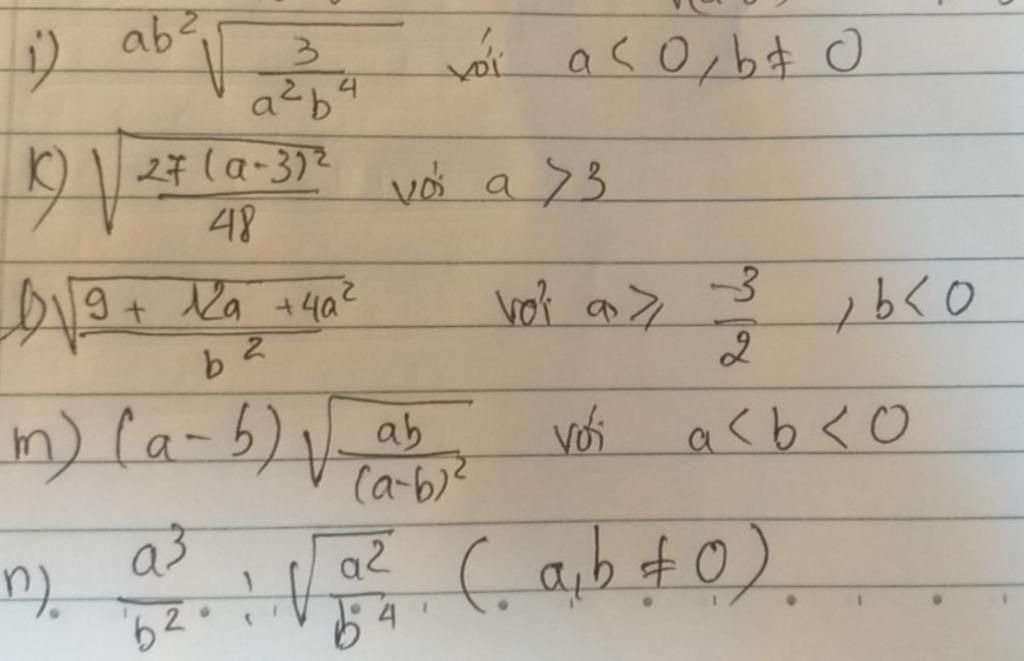 i) ab²√(3/(a²b⁴)) với a < 0, b ≠ 0
k) √(27(a-3)²/48) với a > 3
l) √((9 + 12a + 4a²)/b²) với a ≥ -3/2, b < 0
m) (a - b)√(ab/(a-b)²) với a < b < 0
n). a³/b² : √(a²/b⁴) (a, b ≠ 0)